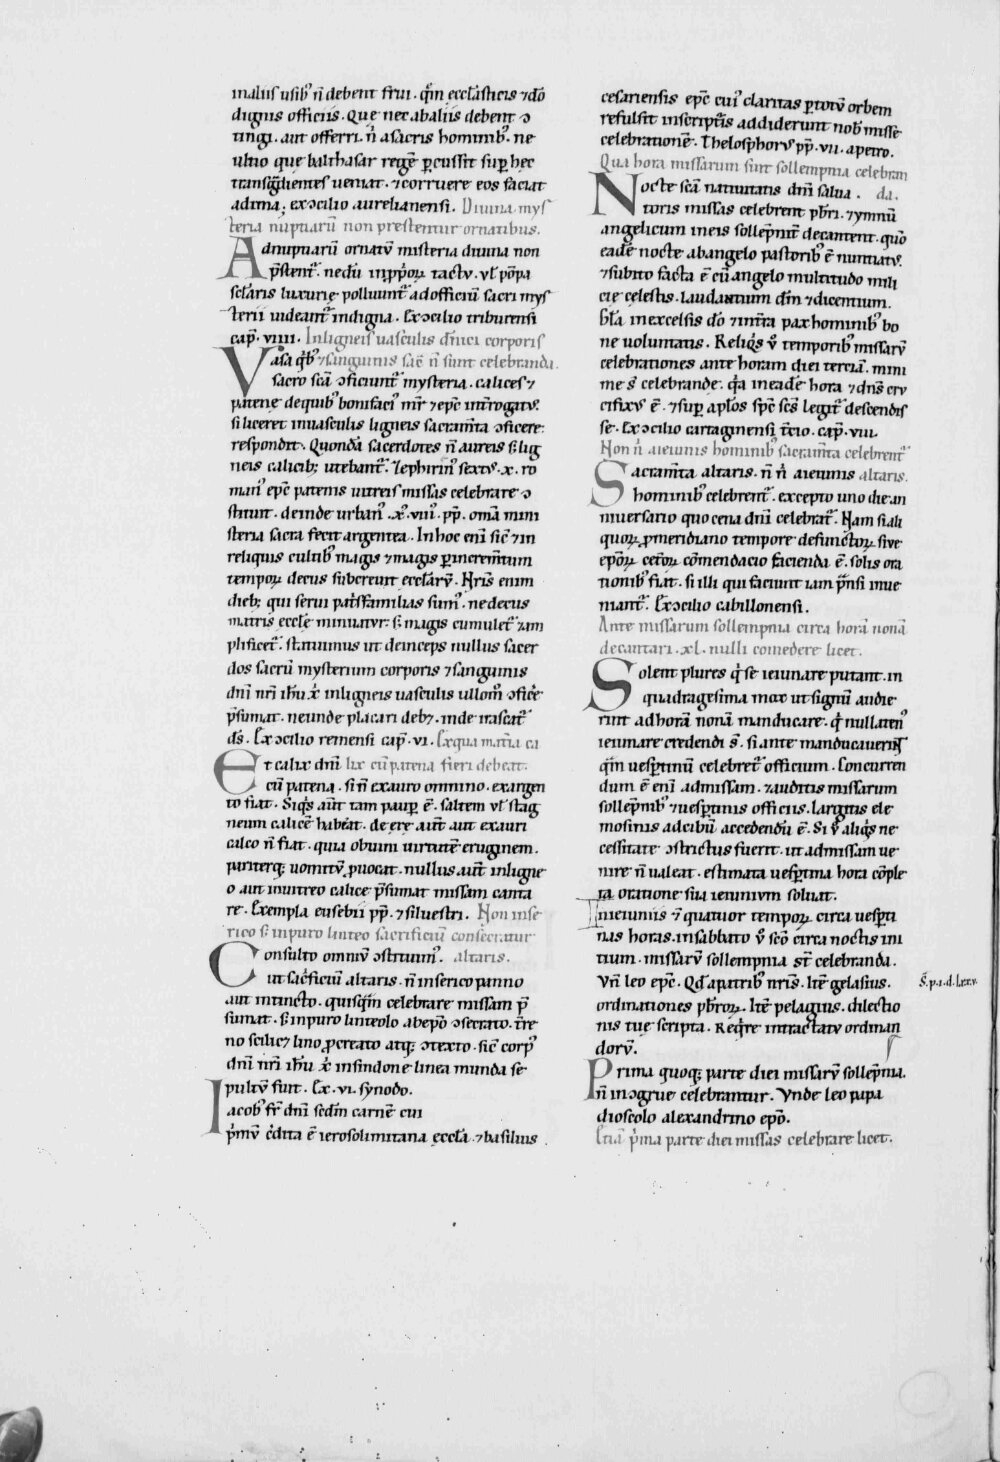 malis usibꝰ n̄ debent frui. qm̄ eccl'asticis ⁊ dō
dignis officiis. Que nec ab aliis debent ↄ
tingi. aut offerri. n̊ a sacris hominibꝰ. ne
ultio que balthasar regē ꝑcussit suꝑ hec
transg̊dientes ueniat. ⁊ corruere eos faciat
ad ima; ex ↄcilio aurelianensi. Diuina mys
teria nuptiarū non prestentur ornatibus.
Ad nuptiarū ornatū misteria diuina non
p̄stent᷑. ne dū inꝓb̊oꝝ tactu. ul' pōpa
sclaris luxurię polluunt᷑ ad officiū sacri mys
terii uideant᷑ indigna. Ex ↄcilio triburensi
cap̄. viiii. In ligneis uasculis dn̄ici corporis
Vasa qͥbꝰ ⁊ sanguinis sac̄ n̄ sunt celebranda.
sacro scā ↄficiunt᷑ mysteria. calices ⁊
patene de quibꝰ bonifaciꝰ mr̄ ⁊ ep̄c int̄rogatꝰ.
si liceret in uasculis ligneis sacram̄ta ↄficere:
respondit. Quondā sacerdotes n̄ aureis s; lig
neis calicibꝫ utebant᷑. Zephirinꝰ sextꝰ. x. ro
manꝰ ep̄c patenis uitreis missas celebrare ↄ
stituit. deinde urbanꝰ .xͧ. viiiꝰ. pp̄. om̄a mini
steria sacra fecit argentea. In hoc eni̅ sic̄ ⁊ in
reliquis cultibꝰ magis ⁊ magis ꝑ increm̄tum
tempoꝝ decus succreuit eccl'arū. Nr̄is enim
diebꝫ qui serui pat̊sfamilias sumꝰ. ne decus
matris eccle̅ minuatur. s; magis cumulet᷑ ⁊ am
plificet᷑. statuimus ut deinceps nullus sacer
dos sacrū mysterium corporis ⁊ sanguinis
dn̄i nr̄i ih̄u x̊ in ligneis uasculis ullomͦ ↄficę̄
p̄sumat. ne unde placari deb⁊. inde irascat᷑
ds̄. Ex ↄcilio remensi cap̄. vi. Ex qua mat̄ia ca
Et calix dn̄i lix cū patena fieri debeat.
cū patena. si n̄ ex auro omnino. ex argen
to fiat. Siqͥs aūt tam pauꝑ ē. saltem ul' stag
neum calicē habeat. de ere aūt aut ex auri
calco n̄ fiat. quia ob uini uirtutē eruginem.
pariterqꝫ uomitū ꝓuocat. nullus aūt in ligne
o aut in uitreo calice p̄sumat missam canta
re. Exempla eusebii pp̄. ⁊ siluestri. Non in se
rico s; in puro linteo sacrificiū consecratur
Consulto omniū ↄstituimꝰ. altaris.
ut sac̊ficium altaris. n̄ in serico panno
aut in tincto. quisqm̄ celebrare missam p̄
sumat. s; in puro linteolo ab ep̄o ↄsecrato. t̄re
no scilic⁊ lino ꝓcreato atqꝫ ↄtexto. sic̄ corpꝰ
dn̄i nr̄i ih̄u x̊ in sindone linea munda se
pultū fuit. Ex .vi. synodo.
Iacobꝰ fr̄ dn̄i scdm̄ carnē cui
p̊mū c̊dita ē ierosolimitana eccl'a. ⁊ basilius
cesariensis ep̄c cuiꝰ claritas ꝑ totū orbem
refulsit in scripturis addiderunt nobꝰ misse
celebrationē. Thelosphorꝰ pp̄. vii. a petro.
Qua hora missarum sint sollempnia celebran
Nocte scā natiuitatis dn̄i salua . da.
toris missas celebrent pb̄ri. ⁊ ymnū
angelicum in eis sollēpnit̄ decantent. qm̄o
eadē nocte ab angelo pastoribꝰ ē nuntiatꝰ.
⁊ subito facta ē cū angelo multitudo mili
cię celestis. laudantium dm̄ ⁊ dicentium.
Gl'a in excelsis dō ⁊ in t̄ra pax hominibꝰ bo
ne uoluntatis. Reliqͥs ů temporibꝰ missarū
celebrationes ante horam diei terciā. mini
me s̄ celebrande. qͥa in eadē hora ⁊ dn̄s cru
cifixꝰ ē. ⁊ suꝑ apl'os spc̄ scs̄ legit᷑ descendis
se. Ex ↄcilio cartaginensi t̄cio. cap̄. viii.
Non n̊ a ieiunis hominibꝰ sacram̄ta celebrent᷑
Sacram̄ta altaris. n̄ n̊ a ieiunis altaris.
hominibꝰ celebrent᷑. excepto uno die an
niuersario quo cena dn̄i celebrat᷑. Nam si ali
quoꝝ pomeridiano tempore defunctoꝝ siue
ep̄oꝝ cet̄oꝝ cōmendacio facienda ē. solis ora
tionibꝰ fiat. si illi qui faciunt iam p̄nsi inue
niant᷑. Ex ↄcilio cabillonensi.
Ante missarum sollempnia circa horā nonā
decantari. xl. nulli comedere licet.
Solent plures qͥ se ieiunare putant. in
quadragesima mox ut signū audie
rint ad horā nonā manducare. qͥ nullatenꝰ
ieiunare credendi s̄. si ante manducauerint
qm̄ uesp̄tinū celebret᷑ officium. Concurren
dum ē eni̅ ad missam. ⁊ auditis missarum
sollēpnibꝰ ⁊ uesꝑtinis officiis. largitis ele
mosinis ad cibū accedendū ē. Si ů aliqͥs ne
cessitate ↄstrictus fuerit. ut ad missam ue
nire n̄ ualeat. estimata uesꝑtina hora cōple
ta oratione sua ieiunium soluat.
In ieiuniis ⁊ quatuor tempoꝝ circa uesꝑti
nas horas. in sabbato ů scō circa noctis ini
tium. missarū sollempnia st̄ celebranda.
Vn̄ leo ep̄c. Qd̄ a patribꝰ nr̄is. Itē gelasius.
ordinationes pb̄roꝝ. Itē pelagius. dilectio
nis tue scripta. Reqͥre in tractatu ordinan
dorū.
Prima quoqꝫ parte diei missarū sollēpnia.
n̄ inↄgrue celebrantur. Vnde leo papa
dioscolo alexandrino ep̄o.
Etiā p̊ma parte diei missas celebrare licet.
S̄. p. i. d. lxxv.